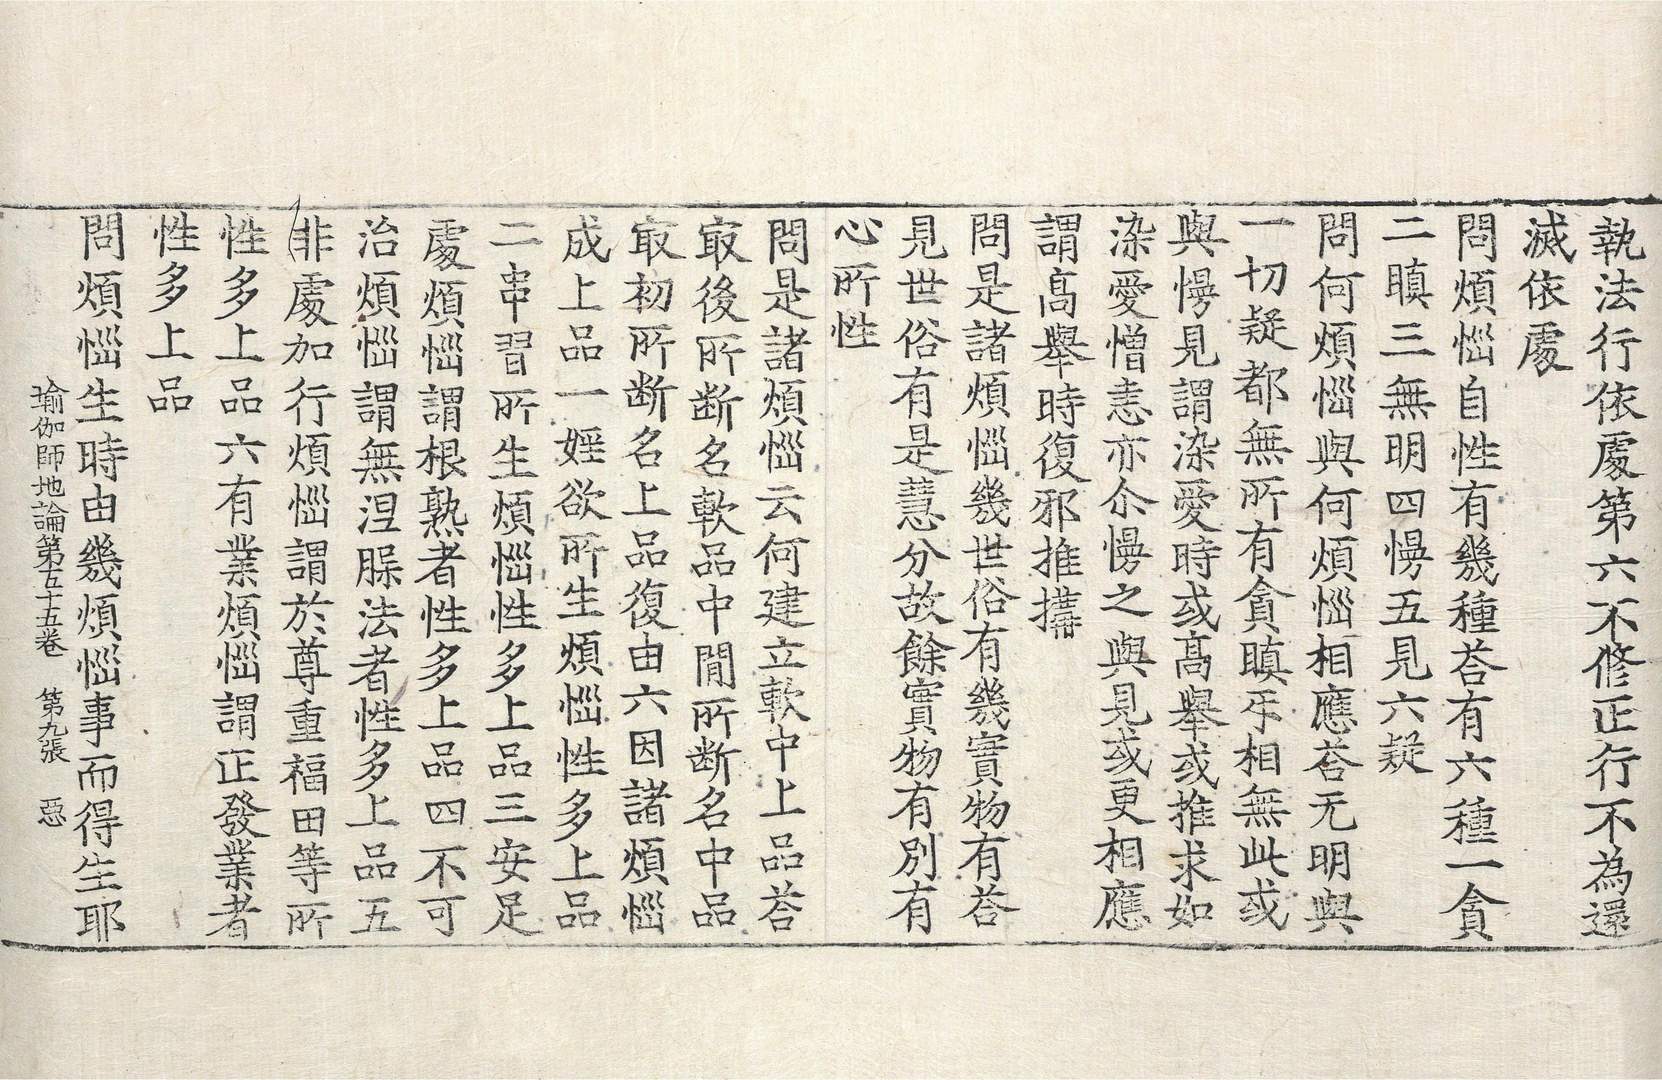 執法行依處第六不修正行不為還
滅依處
問煩惱自性有幾種荅有六種一貪
二瞋三無明四慢五見六疑
問何煩惱與何煩惱相應荅无明與
一切疑都無所有貪瞋互相無此或
與慢見謂染愛時或高舉或推求如
染愛憎恚亦尒慢之與見或更相應
謂高舉時復邪推搆
問是諸煩惱幾世俗有幾實物有荅
見世俗有是慧分故餘實物有別有
心所性
問是諸煩惱云何建立軟中上品荅
㝡後所断名軟品中閒所断名中品
㝡初所断名上品復由六因諸煩惱
成上品一婬欲所生煩惱性多上品
二串習所生煩惱性多上品三安足
處煩惱謂根熟者性多上品四不可
治煩惱謂無涅槃法者性多上品五
非處加行煩惱謂於尊重福田等所
性多上品六有業煩惱謂正發業者
性多上品
問煩惱生時由幾煩惱事而得生耶
瑜伽師地論第五十五卷 第九張 惡